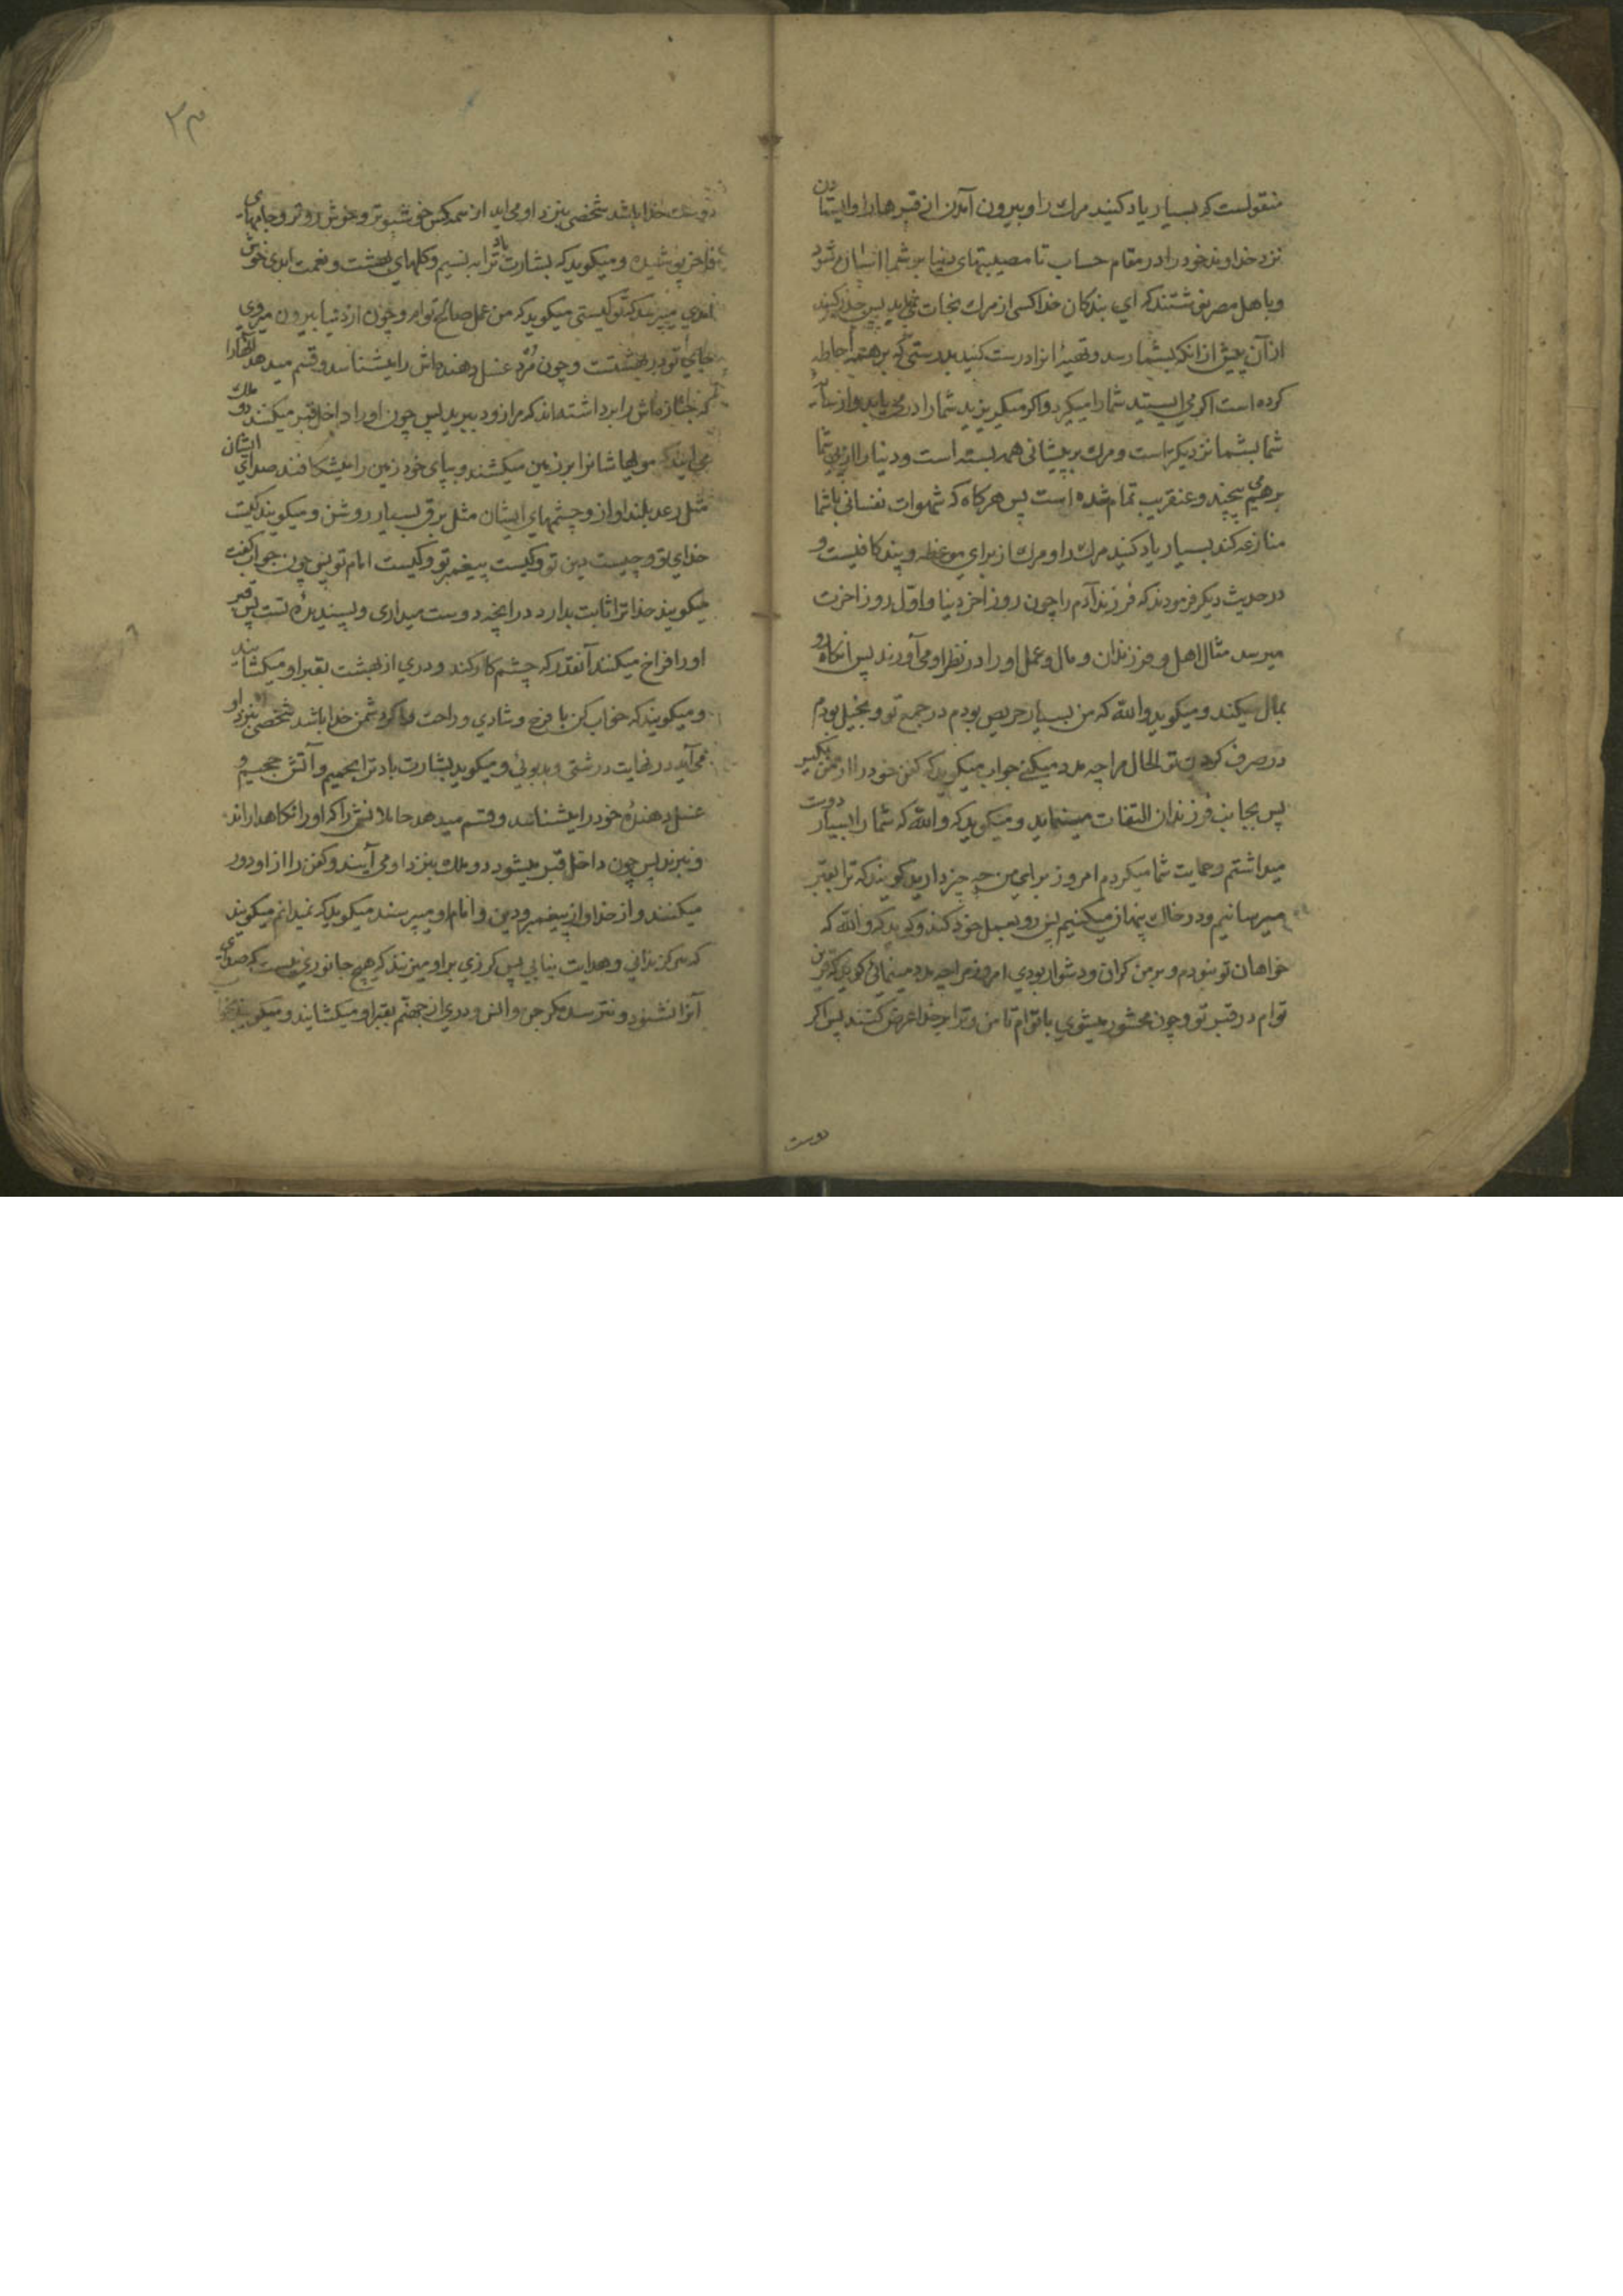 منقولست که بسیار یاد کنید مرك را و بیرون آمدن از قبرها را و ایستادن
نزد خداوند خود را در مقام حساب تا مصیبتهای دنیا بر شما اسان شود
و باهل مصر نوشتند که ای بندکان خدا کسی از مرك نجات نمی یابد پس حذر کنید
از آن پیش از انکه بشما رسد و تهیهٔ انرا درست کنید بدرستی که بر همه احاطه
کرده است اکر می ایستید شما را میکیرد و اکر میکریزید شما را در می یابد و از سایه
شما بشما نزدیکتر است و مرك بر پیشانی همه بسته است و دنیا را از پی شما
بر هم می پیچند و عنقریب تمام شده است پس هرکاه که شهوات نفسانی با شما
منازعه کند بسیار یاد کنید مرك را و مرك از برای موعظه و پند کافیست و
در حدیث دیکر فرمودند که فرزند آدم را چون روز اخر دنیا و اوّل روز اخرت
میرسد مثال اهل و فرزندان و مال و عمل او را در نظر او می آورند پس انکاه رو
بمال میکند و میکوید والله که من بسیار حریص بودم در جمع تو و بخیل بودم
در صرف کردن تو الحال مرا چه مدد میکنی جواب میکوید که کفن خود را از من بکیر
پس بجانب فرزندان التفات مینماید و میکوید که والله که شما را بسیار دوست
میداشتم و حمایت شما میکردم امروز برای من چه چیز دارید کویند که ترا بقبر
میرسانیم و در خاك پنهان میکنیم پس رو بعمل خود کند و کوید که والله که
خواهان تو نبودم و بر من کران و دشوار بودی امروز مرا چه مدد مینمائی کوید که قرین
توام در قبر تو و چون محشور میشوی با توام تا من و ترا بر خدا عرض کنند پس اکر
دوست
۳۰
دوست خدا باشد شخصی بنزد او می اید از همه کس خوشبوتر و خوش روتر و جامهای
فاخر پوشیده و میکوید که بشارت باد ترا به نسیم و کلهای بهشت و نعمت ابدی خوش
امدی میپرسد که تو کیستی میکوید که من عمل صالح توام و چون از دنیا بیرون میروی
جای تو در بهشتست و چون مرد غسل دهنده‌اش را میشناسد و قسم میدهد انها را
که جنازه‌اش را برداشته‌اند که مرا زود ببرید پس چون او را داخل قبر میکنند دو ملك
می آیند که مویها شانرا بر زمین میکشند و بپای خود زمین را میشکافند صدای ایشان
مثل رعد بلند اواز و چشمهای ایشان مثل برق بسیار روشن و میکویند کیست
خدای تو و چیست دین تو و کیست پیغمبر تو و کیست امام تو پس چون جواب کفت
میکویند خدا ترا ثابت بدارد در انچه دوست میداری و پسندیدهٔ تست پس قبر
او را فراخ میکنند آنقدر که چشم کار کند و دری از بهشت بقبر او میکشایند
و میکویند که خواب کن با فرح و شادی و راحت و اکر دشمن خدا باشد شخصی بنزد او
می آید در نهایت درشتی و بدبوئی و میکوید بشارت باد ترا بحمیم و آتش جحیم و
غسل دهندهٔ خود را میشناسد و قسم میدهد حاملانش را که او را نکاهدارند
و نبرند پس چون داخل قبر میشود دو ملك بنزد او می آیند و کفن را از او دور
میکنند و از خدا و از پیغمبر و دین و امام او میپرسند میکوید که نمیدانم میکویند
که هرکز ندانی و هدایت نیابی پس کرزی بر او میزنند که هیچ جانوری نیست که صدای
آنرا نشنود و نترسد مکر جن و انس و دری از جهنم بقبر او میکشایند و میکویند